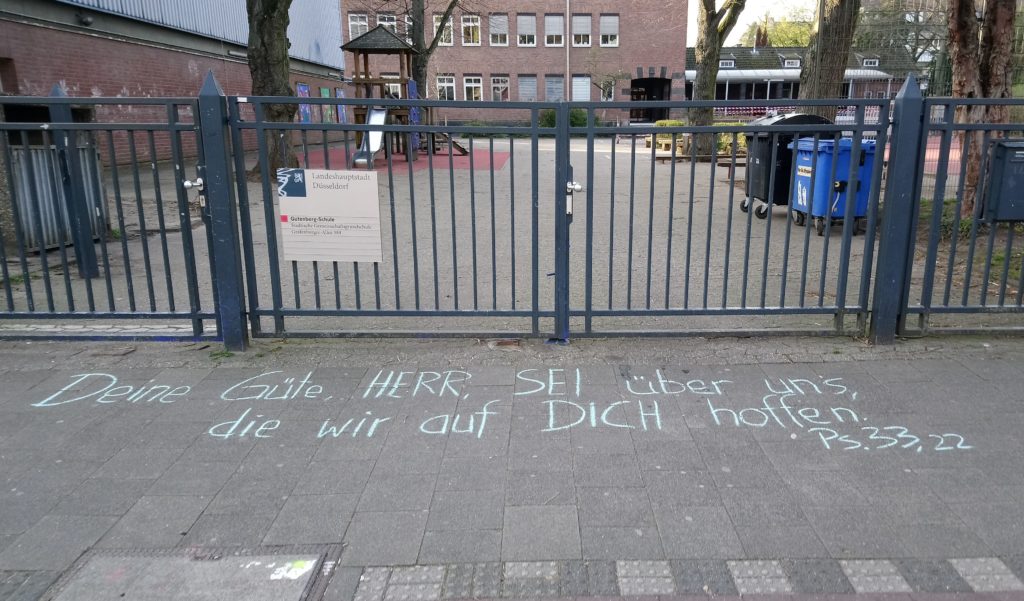 Landeshauptstadt
Düsseldorf
Gutenberg-Schule
Städtische Gemeinschaftsgrundschule
Grafenberger Allee
Deine Güte, HERR, SEI über uns,
die wir auf DICH hoffen.
Ps. 33, 22